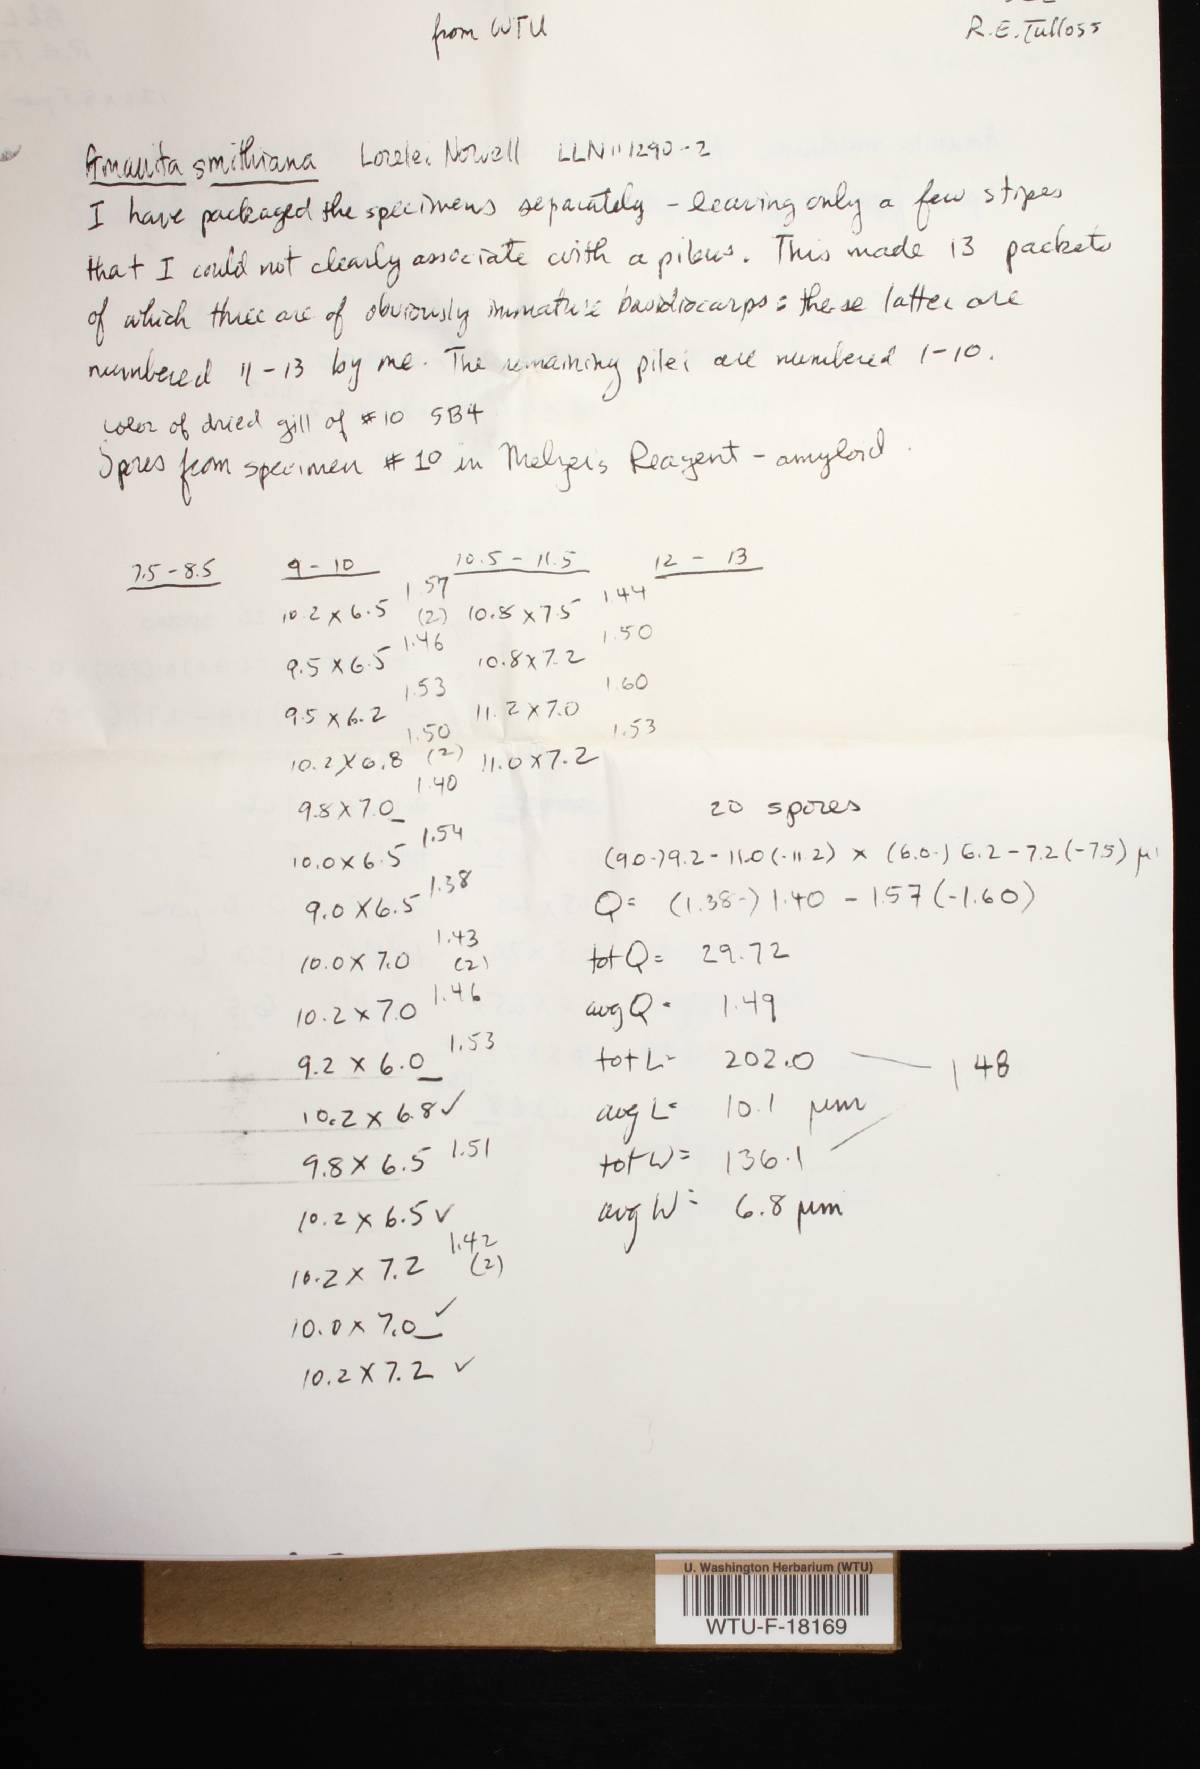 from WTU
R.E. Tulloss
Amanita smithiana Lorelei Norvell LLN1111290-2
I have packaged the specimens separately - leaving only a few stipes
that I could not clearly associate with a pileus. This made 13 packets
of which three are of obviously immature basidiocarps: these latter are
numbered 11-13 by me. The remaining pilei are numbered 1-10.
color of dried gill of #10 5B4
Spores from specimen #10 in Melzer's Reagent - amyloid.
7.5-8.5 9-10 10.5-11.5 12-13
10.2 x 6.5 1.57 (2) 10.8 x 7.5 1.44
9.5 x 6.5 1.46 10.8 x 7.2 1.50
9.5 x 6.2 1.53 11.2 x 7.0 1.60
10.2 x 6.8 1.50 (2) 11.0 x 7.2 1.53
9.8 x 7.0 1.40
10.0 x 6.5 1.54
9.0 x 6.5 1.38
10.0 x 7.0 1.43 (2)
10.2 x 7.0 1.46
9.2 x 6.0 1.53
10.2 x 6.8 ✓
9.8 x 6.5 1.51
10.2 x 6.5 ✓
10.2 x 7.2 1.42 (2)
10.0 x 7.0 ✓
10.2 x 7.2 ✓
20 spores
(9.0-)9.2-11.0(-11.2) x (6.0-)6.2-7.2(-7.5) μ
Q= (1.38-)1.40-1.57(-1.60)
tot Q= 29.72
avg Q= 1.49
tot L= 202.0 1.48
avg L= 10.1 μm
tot W= 136.1
avg W= 6.8 μm
U. Washington Herbarium (WTU)
WTU-F-18169